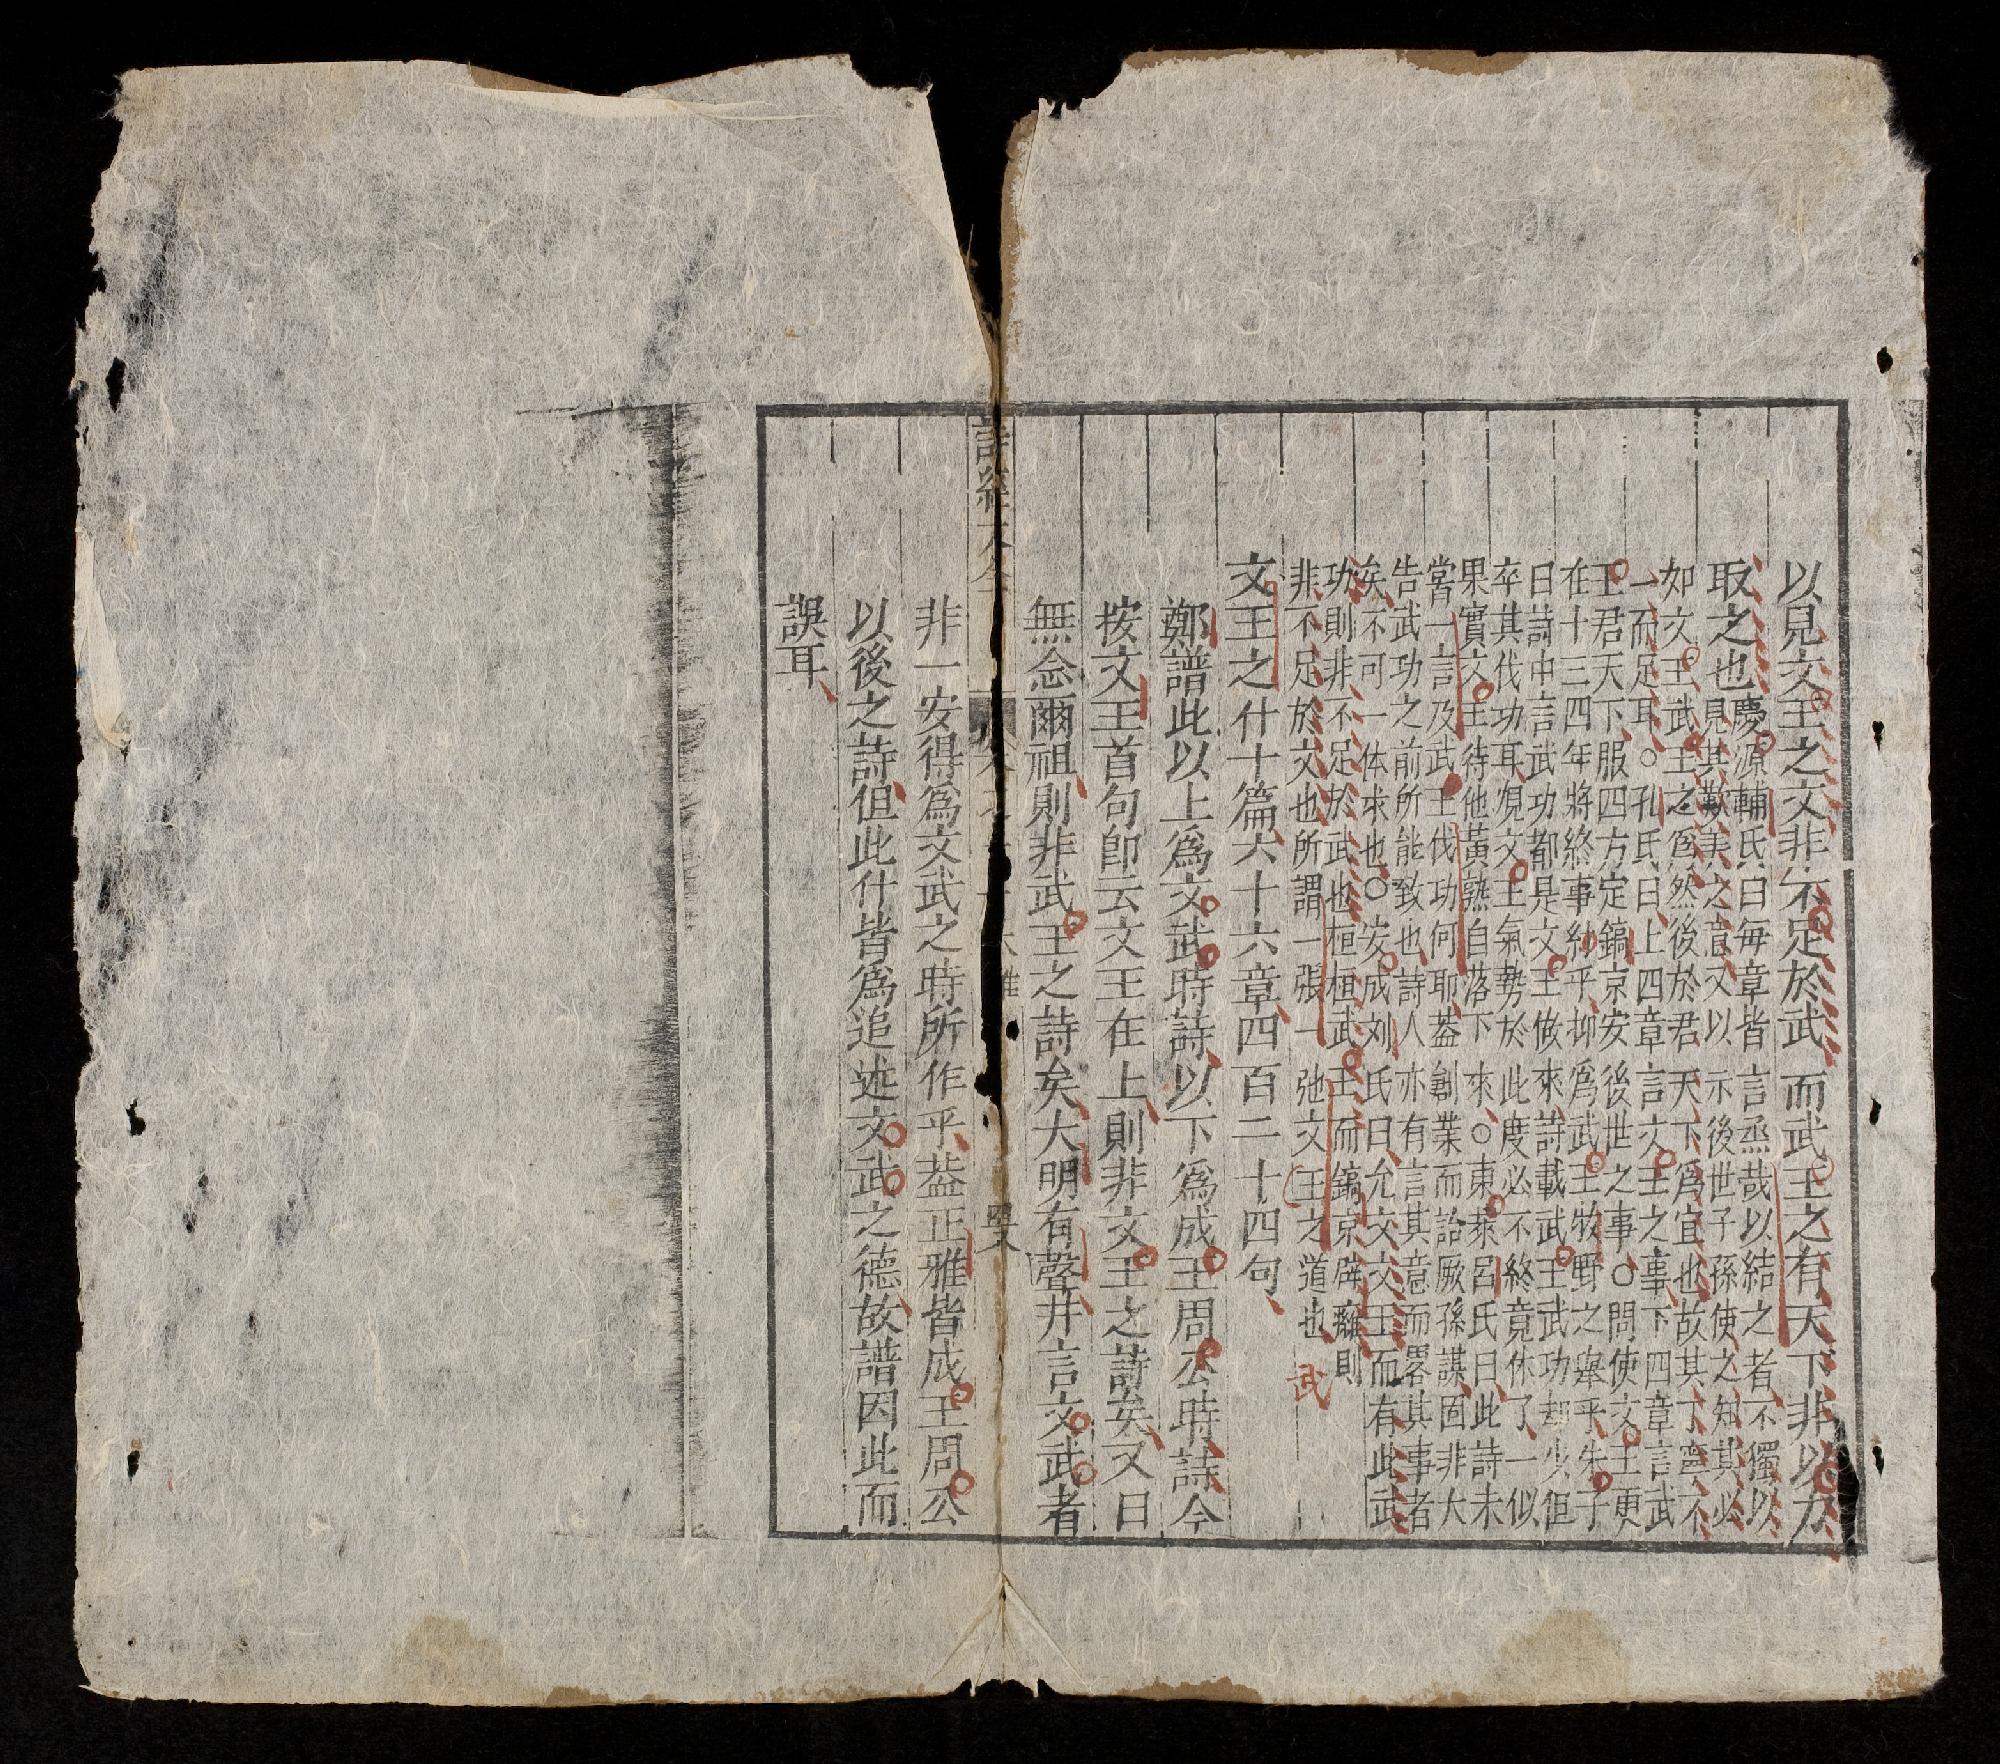 以見文王之文非不足於武而武王之有天下非以力
取之也慶源輔氏曰每章皆言烝哉以結之者不獨以
見其歎美之意又以示後世子孫使之知其必
如文王武王之爲然後於君天下爲宜也故其丁寧不
一而足耳○孔氏曰上四章言文王之事下四章言武
王君天下服四方定鎬京安後世之事○問使文王更
在十三四年將終事紂乎抑爲武王牧野之舉乎朱子
曰詩中言武功都是文王做來詩載武王武功却少但
卒其伐功耳覌文王氣勢於此度必不終竟休了一似
果實文王待他黃熟自落下來○東萊呂氏曰此詩未
當一言及武王伐功何耶葢創業而詒厥孫謀固非大
告武功之前所能致也詩人亦有言其意而畧其事者
矣不可一体求也○安成刘氏曰允文文王而有此武
功則非不足於武也桓桓武王而鎬京辟廱則
非不足於文也所謂一張一弛文王之道也 武
文王之什十篇六十六章四百二十四句
鄭譜此以上爲文武時詩以下爲成王周公時詩今
按文王首句卽云文王在上則非文王之詩矣又曰
無念爾祖則非武王之詩矣大明有聲并言文武者
詩經大全
非一安得爲文武之時所作乎葢正雅皆成王周公
以後之詩但此什皆爲追述文武之德故譜因此而
誤耳